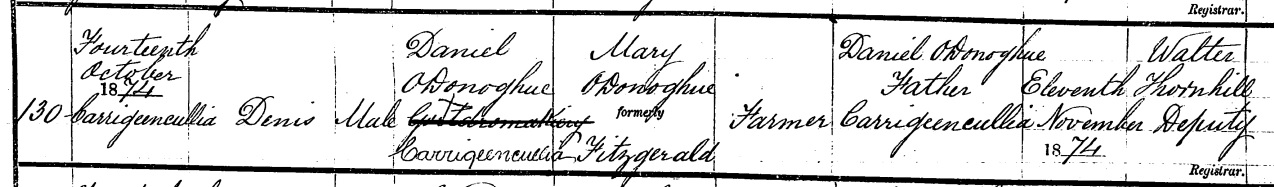 Registrar.
130
Fourteenth
October
1874
Carrigeencullia
Denis
Male
Daniel
O'Donoghue
Carrigeencullia
Mary
O'Donoghue
formerly
Fitzgerald
Farmer
Daniel O'Donoghue
Father
Carrigeencullia
Eleventh
November
1874
Walter
Thornhill
Deputy
Registrar.